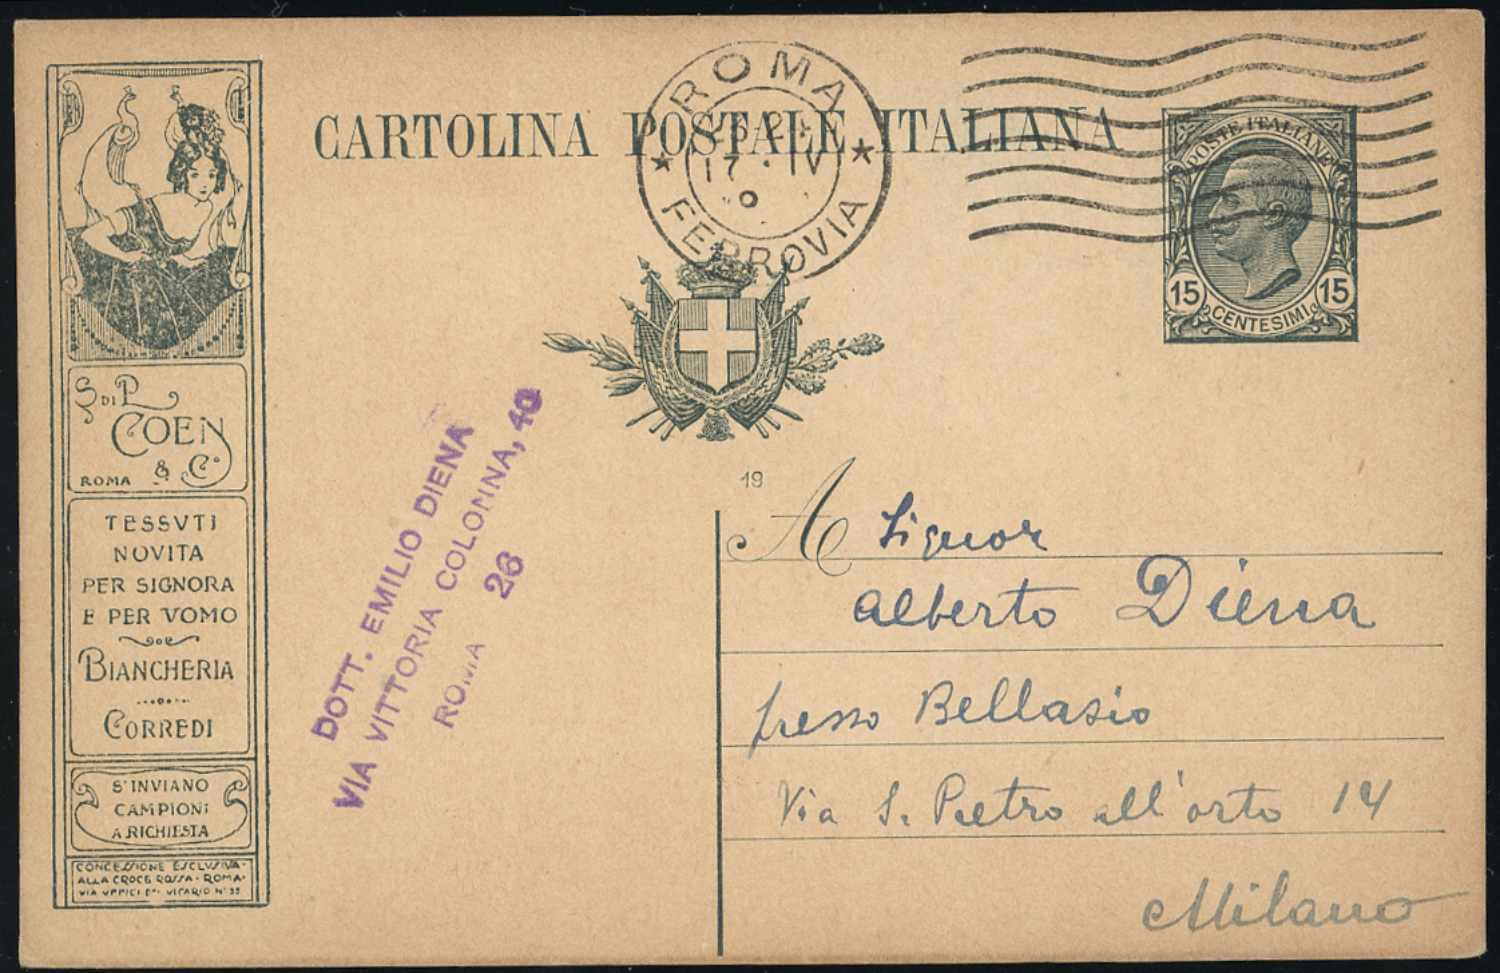 CARTOLINA POSTALE ITALIANA
ROMA
17 · IV
FERROVIA
POSTE ITALIANE
15 15
CENTESIMI
S DI P
COEN
& Cº
ROMA
TESSVTI
NOVITA
PER SIGNORA
E PER VOMO
BIANCHERIA
CORREDI
S'INVIANO
CAMPIONI
A RICHIESTA
CONCESSIONE ESCLVSIVA·
ALLA CROCE ROSSA · ROMA·
VIA VFFICI VICARIO
DOTT. EMILIO DIENA
VIA VITTORIA COLONNA, 40
ROMA 26
19
A Signor
Alberto Diena
presso Bellasio
Via S. Pietro all'orto 14
Milano